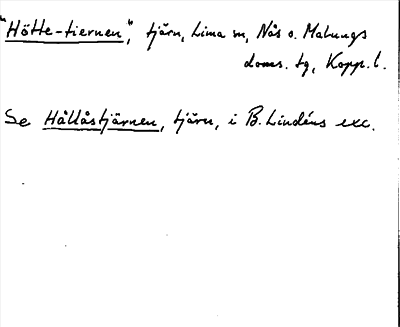 "Hötte-tiernen", tjärn, Lima sn, Nås o. Malungs
doms. tg, Kopp. l.
Se Hållåstjärnen, tjärn, i B. Lindéns exc.